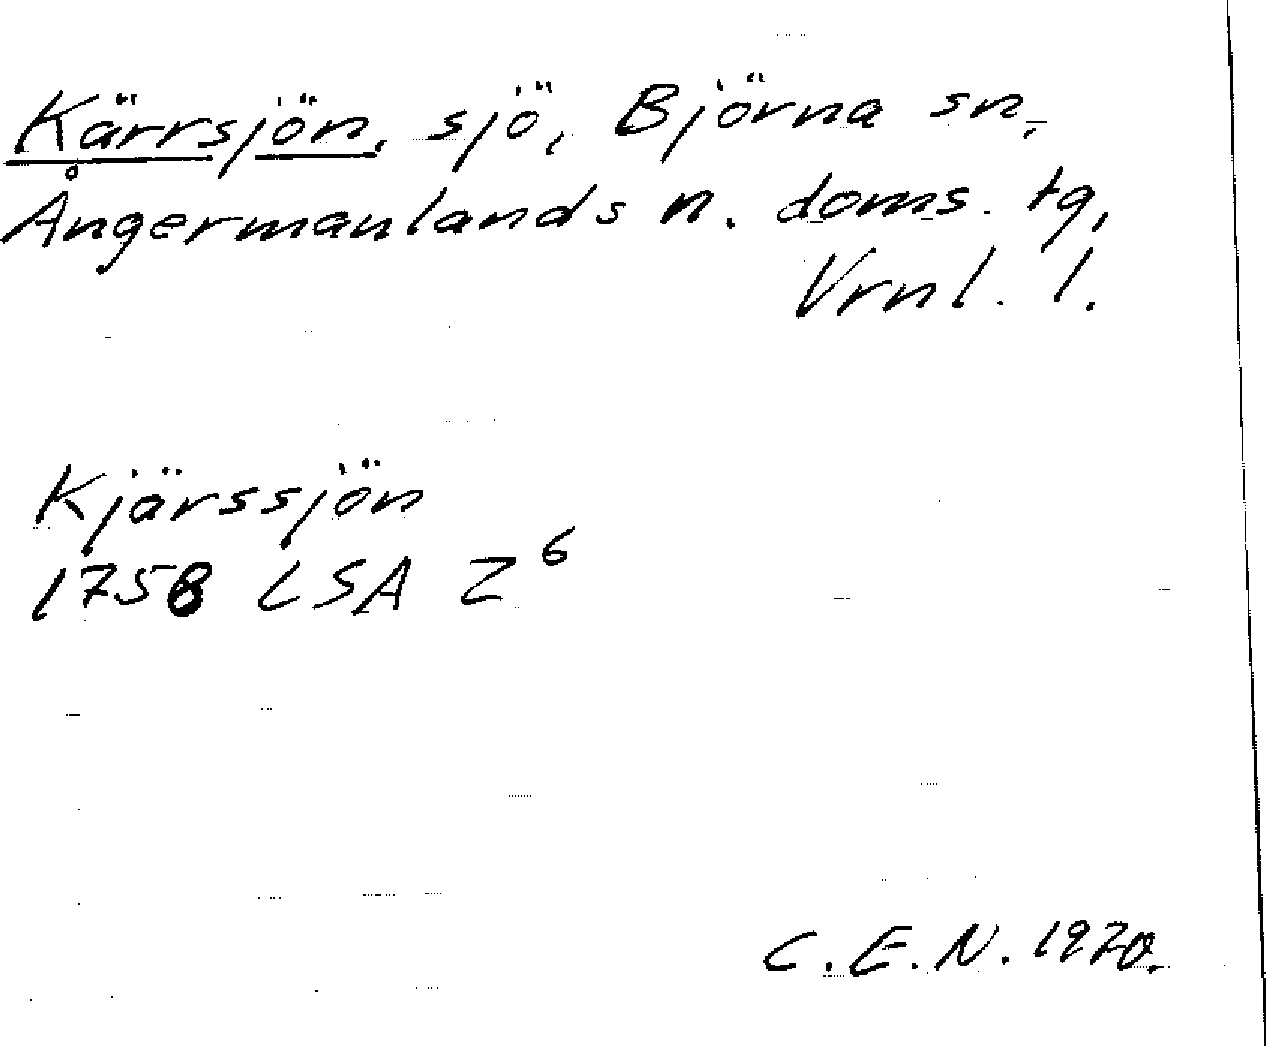 Kärrsjön, sjö, Björna sn,
Ångermanlands n. doms. tg,
Vrnl. l.
Kjärssjön
1758 LSA Z6
C.E.N. 1970.